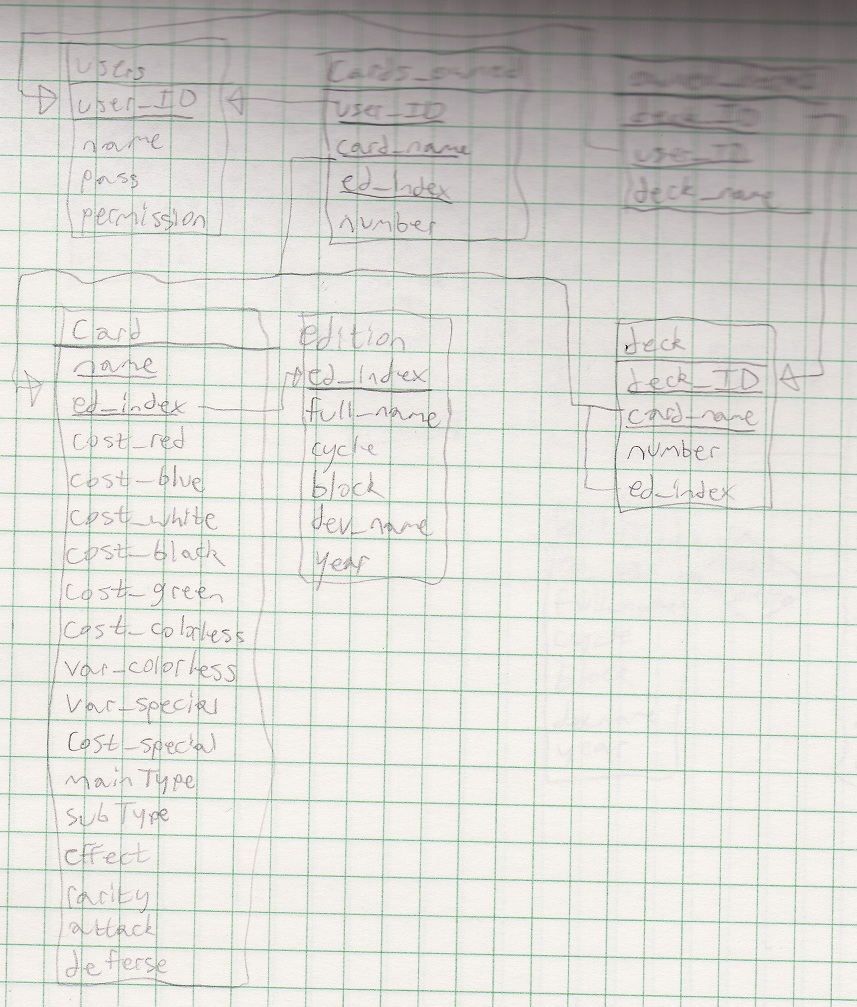 users
user_ID
name
pass
permission
Cards_owned
user_ID
card_name
ed_index
number
deck_ID
user_ID
deck_name
Card
name
ed_index
cost_red
cost_blue
cost_white
cost_black
cost_green
cost_colorless
var_colorless
var_special
cost_special
mainType
subType
effect
rarity
attack
defense
edition
ed_index
full_name
cycle
block
dev_name
year
deck
deck_ID
card_name
number
ed_index